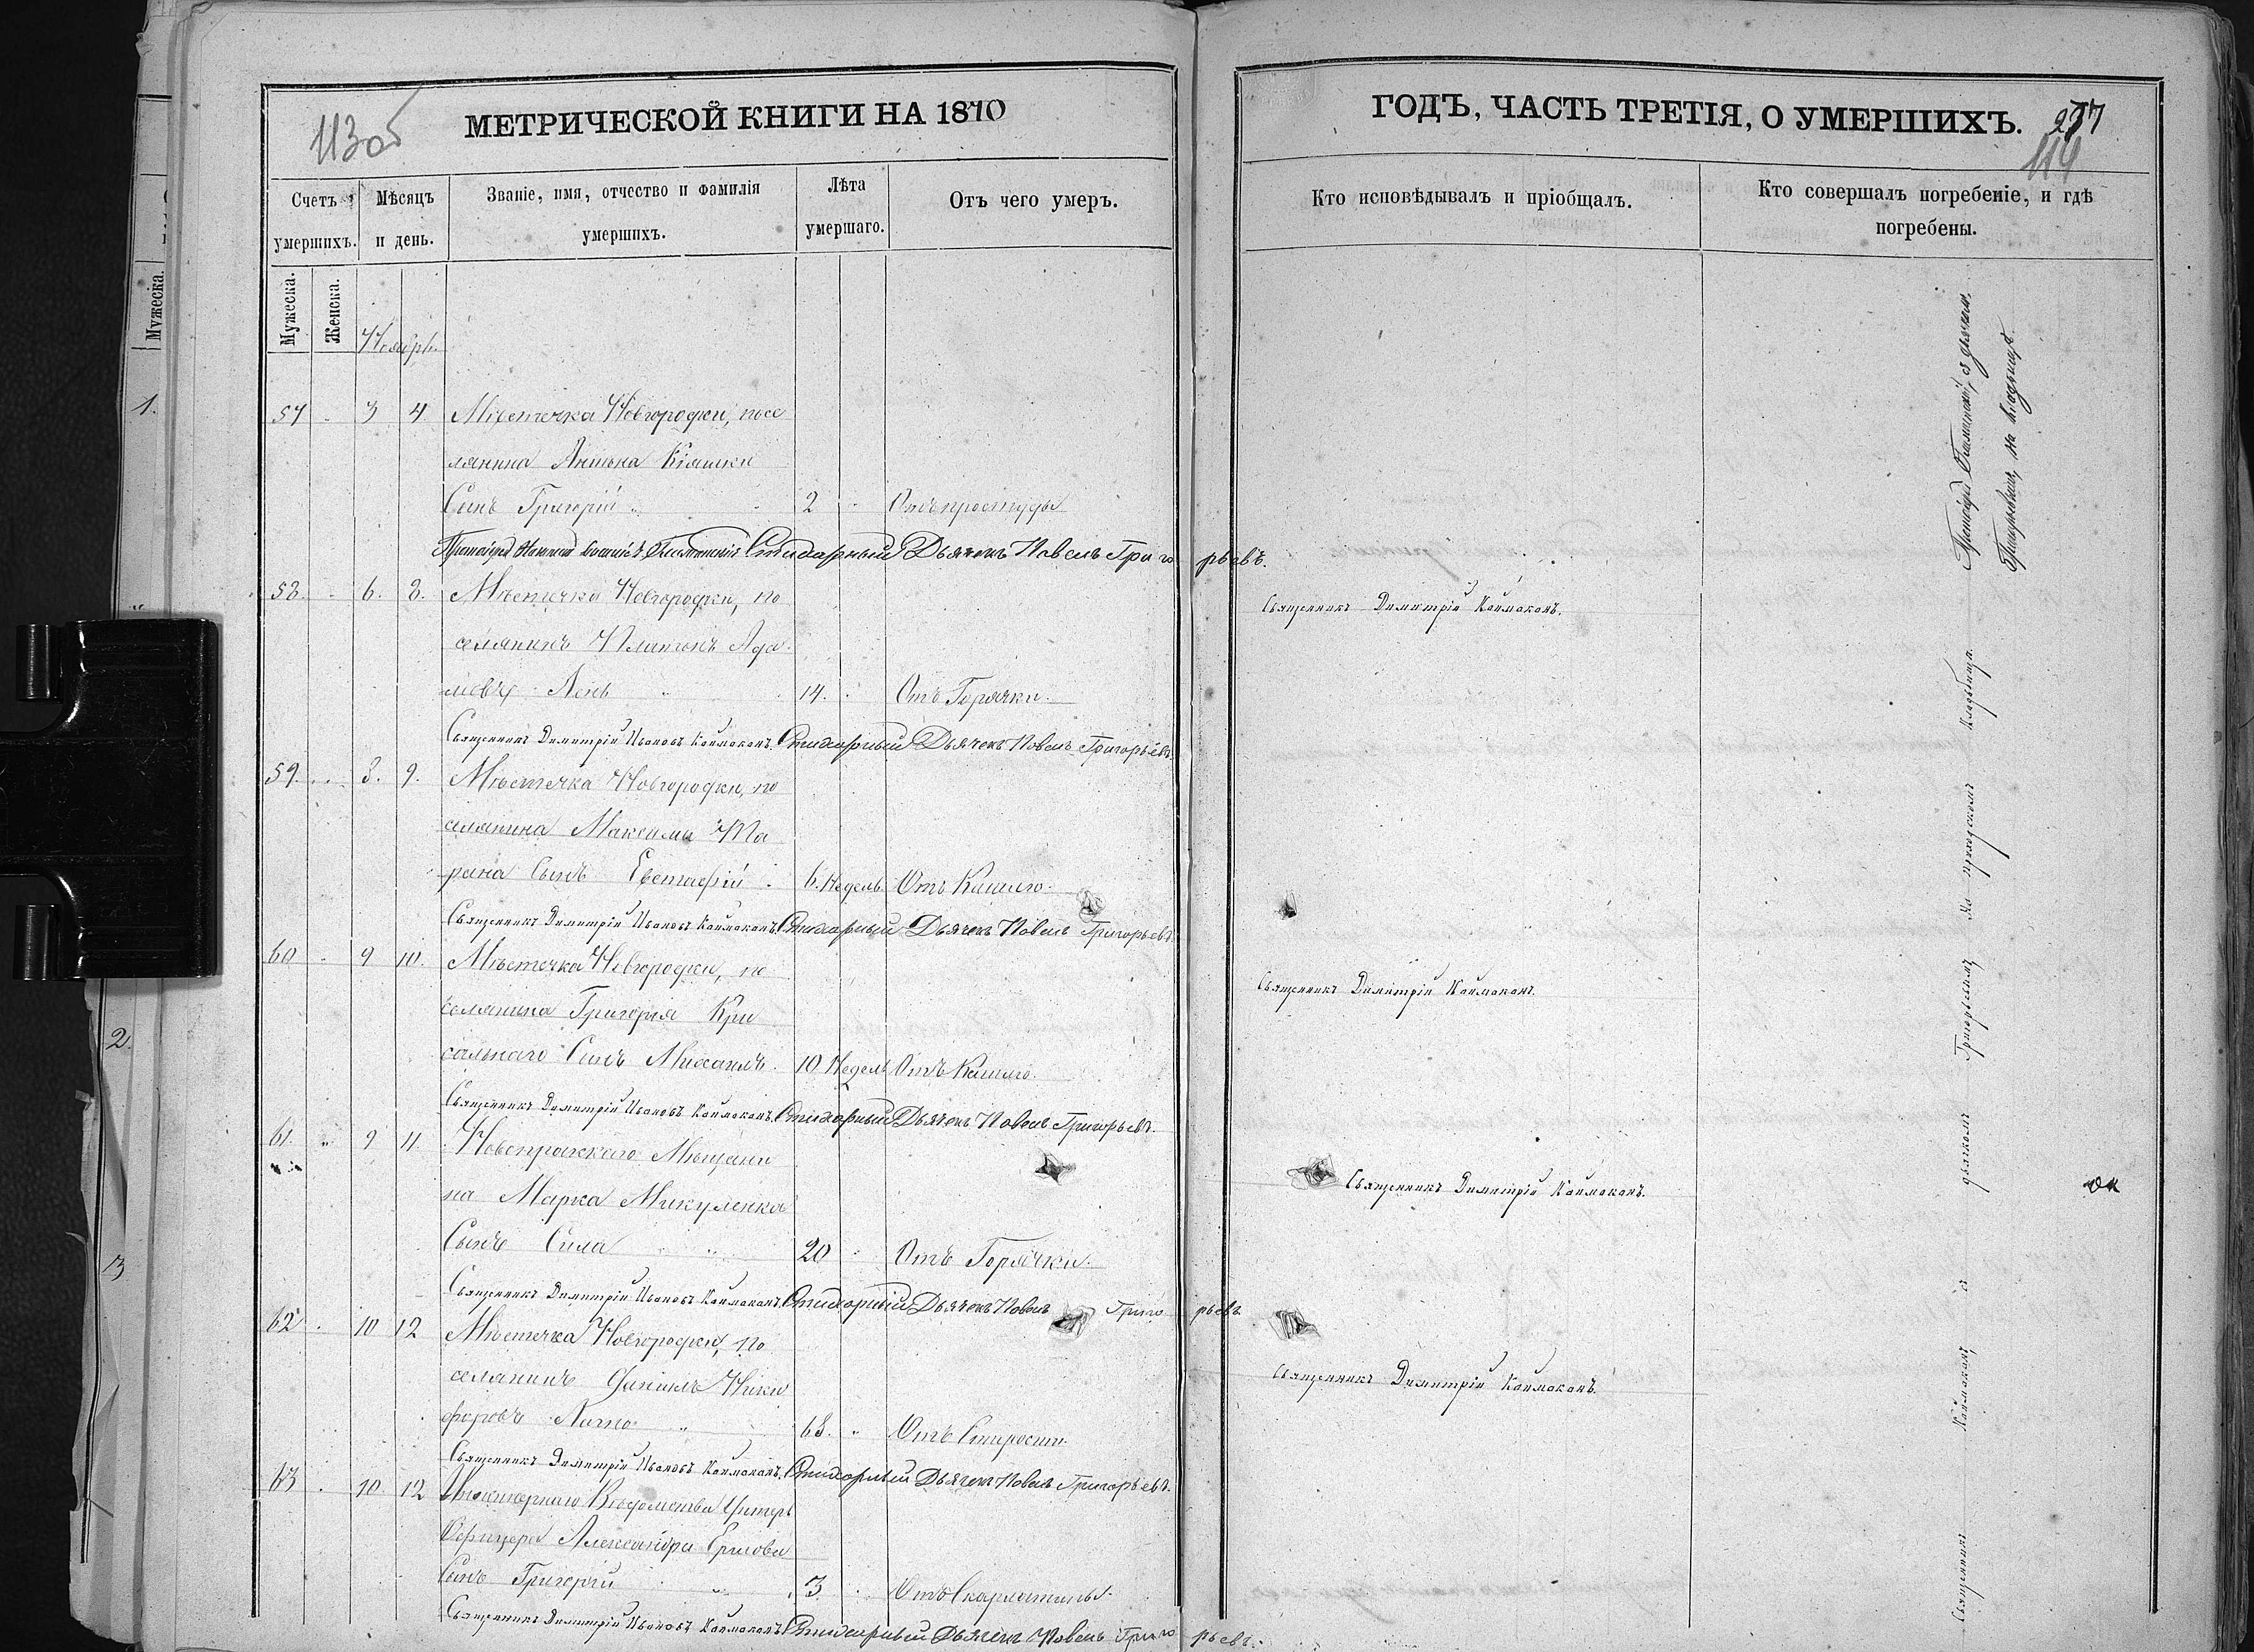 113 об
МЕТРИЧЕСКОЙ КНИГИ НА 1870
Счетъ умершихъ.
Мѣсяцъ и день.
Званіе, имя, отчество и фамилія умершихъ.
Лѣта умершаго.
Отъ чего умеръ.
Мужеска.
Женска.
Ноябрь.
57 3 4 Мѣстечка Новгородки, посе
лянина Антона
Сынъ Григорій 2 Отъ простуды
Протоіерей Стихарный Дьячекъ Павелъ Григорьевъ.
58. 6. 8. Мѣстечка Новгородки, по
селянинъ Платонъ Ада
мовъ 14. Отъ Горячки.
Священникъ Димитрій Ивановъ Каймаканъ. Стихарный Дьячекъ Павелъ Григорьевъ.
59. 8. 9. Мѣстечка Новгородки, по
селянина Максима
Сынъ Евстафій 6. Недель Отъ Кашлю.
Священникъ Димитрій Ивановъ Каймаканъ. Стихарный Дьячекъ Павелъ Григорьевъ.
60 9 10. Мѣстечка Новгородки, по
селянина Григорія Кри
сальнаго Сынъ Михаилъ. 10 Недель Отъ Кашлю.
Священникъ Димитрій Ивановъ Каймаканъ. Стихарный Дьячекъ Павелъ Григорьевъ.
61. 9 11. Новопражскаго Мѣщани
на Марка Микуленка
Сынъ Сила 20 Отъ Горячки.
Священникъ Димитрій Ивановъ Каймаканъ. Стихарный Дьячекъ Павелъ Григорьевъ
62 10 12 Мѣстечка Новгородки, по
селянинъ Даніилъ Ники
форовъ 68. Отъ Старости.
Священникъ Димитрій Ивановъ Каймаканъ. Стихарный Дьячекъ Павелъ Григорьевъ.
63 10 12 Инженернаго Ведомства Унтеръ
Офицера Александра
Сынъ Григорій 3. Отъ Скарлатины.
Священникъ Димитрій Ивановъ Каймаканъ. Стихарный Дьячекъ Павелъ Григорьевъ.
ГОДЪ, ЧАСТЬ ТРЕТІЯ, О УМЕРШИХЪ.
114
Кто исповѣдывалъ и пріобщалъ.
Кто совершалъ погребеніе, и гдѣ погребены.
Священникъ Димитрій Каймаканъ.
Священникъ Димитрій Каймаканъ.
Священникъ Димитрій Каймаканъ.
Священникъ Димитрій Каймаканъ.
Священникъ Каймаканъ, съ дьячкомъ Григорьевымъ на приходскомъ кладбищѣ.
Мужеска.
1.
2.
3